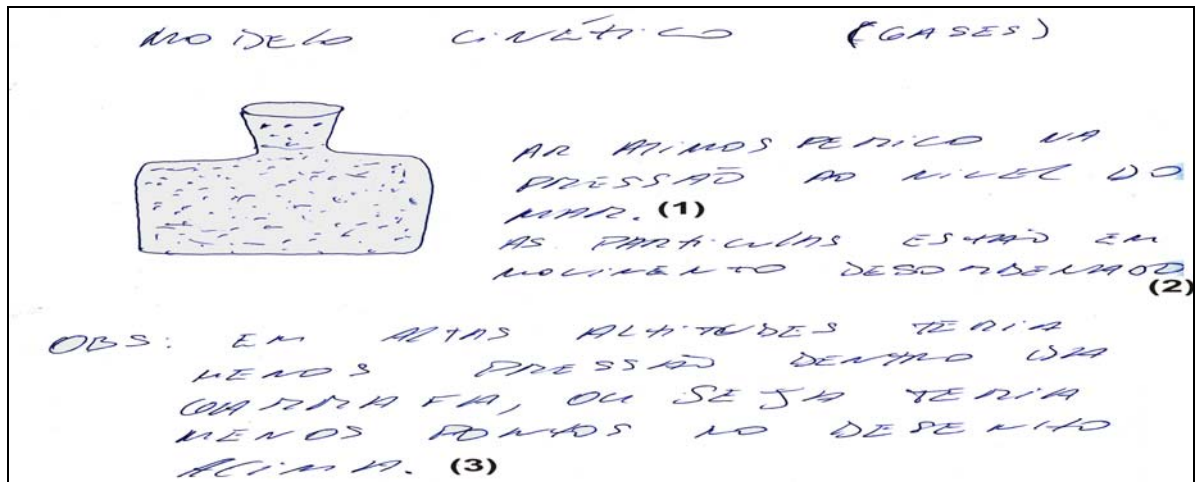 MODELO CINÉTICO (GASES)
AR ATIMOSFERICO NA
PRESSÃO AO NIVEL DO
MAR. (1)
AS PARTICULAS ESTÃO EM
MOVIMENTO DESORDENADO
(2)
OBS: EM ALTAS ALTITUDES TERIA
MENOS PRESSÃO DENTRO DA
GARRAFA, OU SEJA TERIA
MENOS PONTOS NO DESENHO
ACIMA. (3)